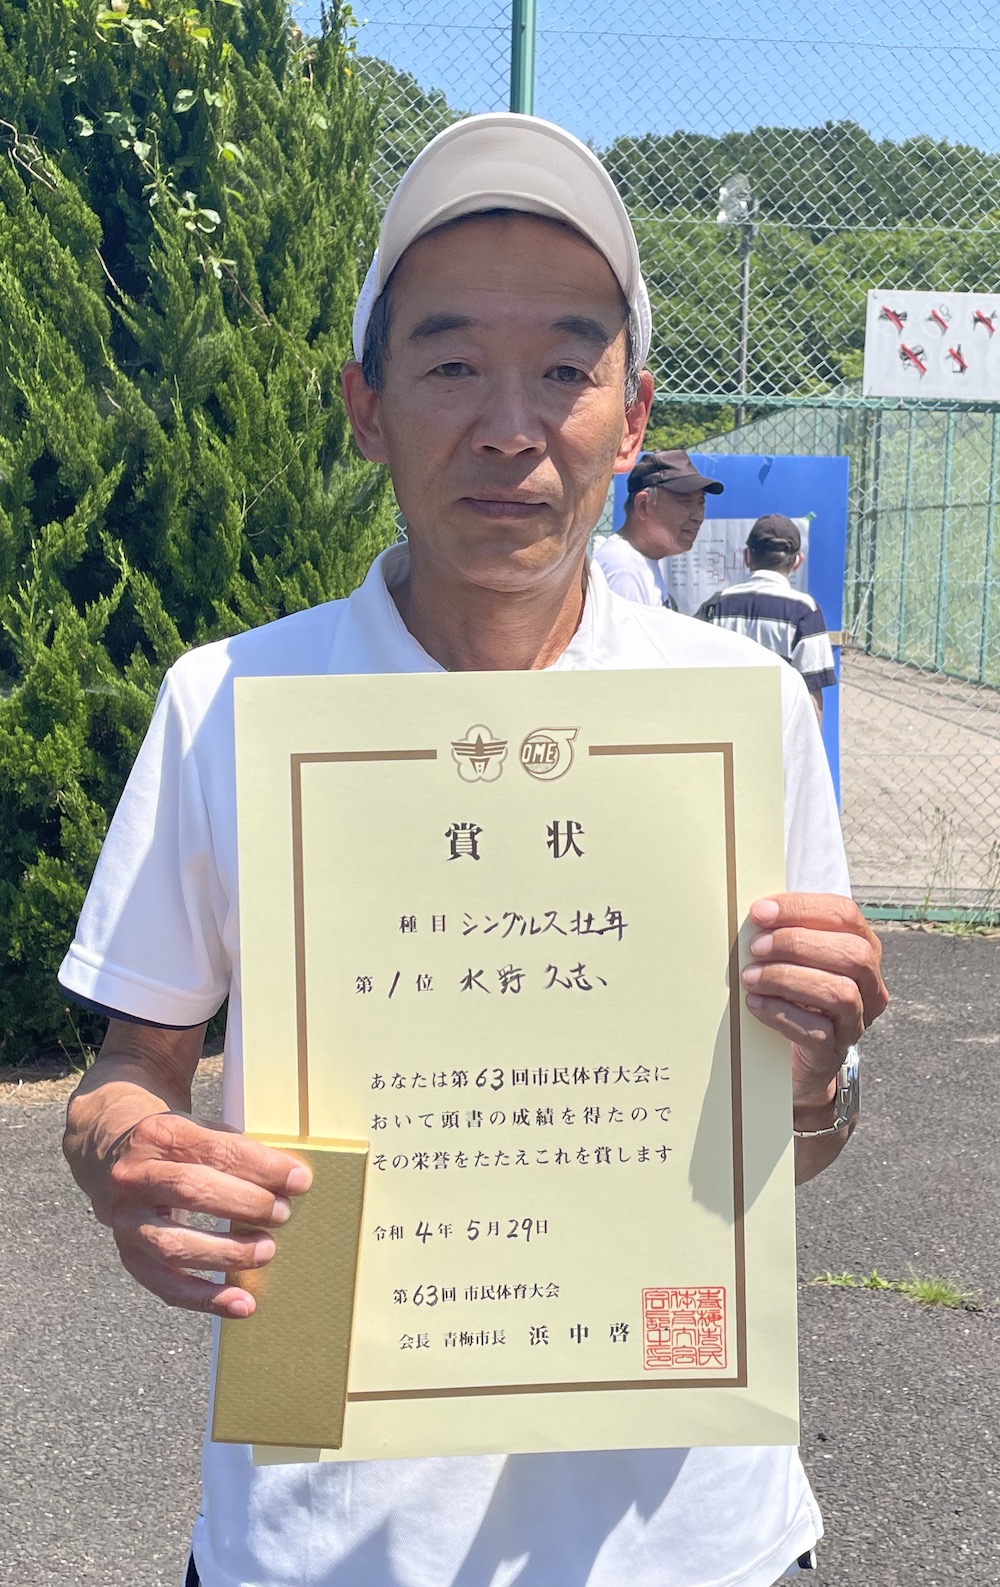 OME
賞 状
種 目 シングルス壮年
第 1 位 水野 久志
あなたは第63回市民体育大会に
おいて頭書の成績を得たので
その栄誉をたたえこれを賞します
令和 4年 5月29日
第63回 市民体育大会
会長 青梅市長 浜 中 啓